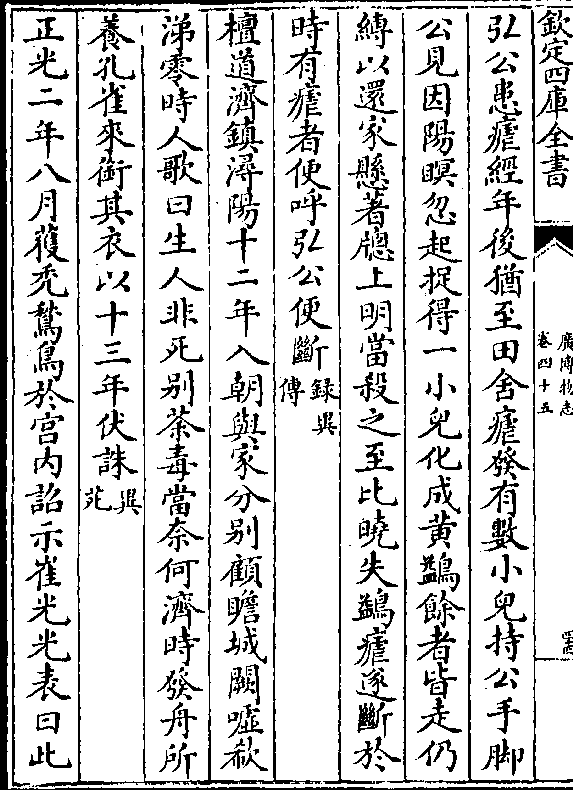 欽定四庫全書
廣博物志
卷四十五
弘公患瘧經年後猶至田舍瘧發有數小兒持公手脚
公見因陽瞑忽起捉得一小兒化成黄鷁餘者皆走仍
縛以還家懸著牕上明當殺之至比曉失鷁瘧遂斷於
時有瘧者便呼弘公便斷録異
傳
檀道濟鎮潯陽十二年入朝與家分别顧瞻城闕嘘欷
涕零時人歌曰生人非死别荼毒當奈何濟時發舟所
養孔雀來銜其衣以十三年伏誅異
苑
正光二年八月蒦秃鶖鳥於宫内詔示崔光光表曰此